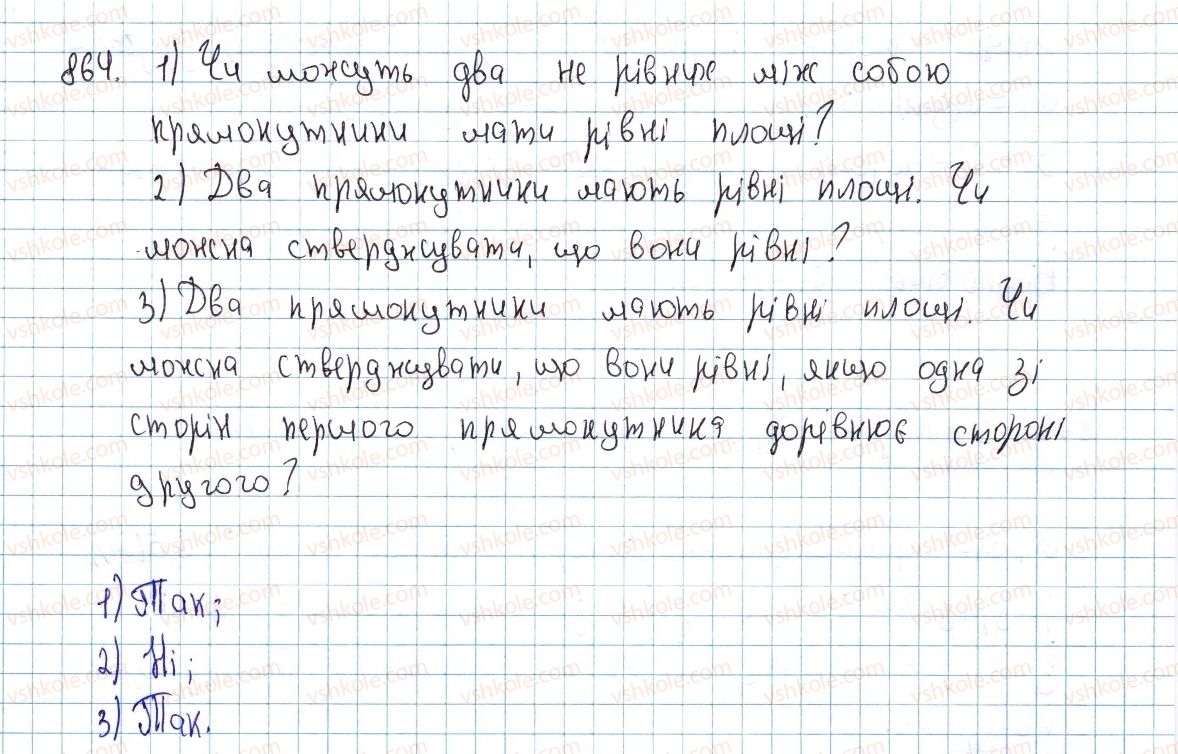 864. 1) Чи можуть два не рівних між собою
прямокутники мати рівні площі?
2) Два прямокутники мають рівні площі. Чи
можна стверджувати, що вони рівні?
3) Два прямокутники мають рівні площі. Чи
можна стверджувати, що вони рівні, якщо одна зі
сторін першого прямокутника дорівнює стороні
другого?
1) Так;
2) Ні;
3) Так.